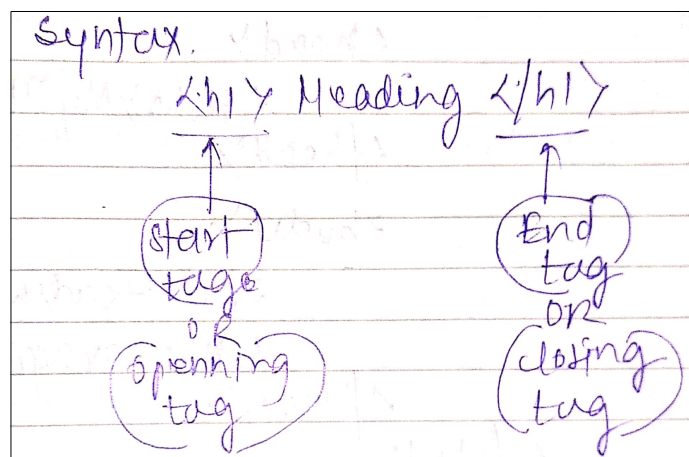 Syntax.
<h1> Heading </h1>
Start
tag.
OR
Openning
tag
End
tag
OR
Closing
tag